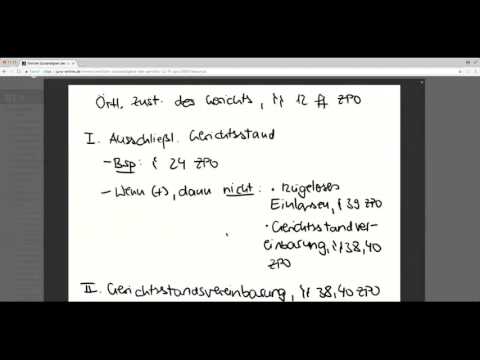 Örtl. Zust. des Gerichts, §§ 12 ff ZPO
I. Ausschließl. Gerichtsstand
- Bsp: § 24 ZPO
- Wenn (+), dann nicht: • rügeloses
Einlassen, § 39 ZPO
• Gerichtsstandver-
einbarung, §§ 38, 40
ZPO
II. Gerichtsstandsvereinbarung, §§ 38, 40 ZPO